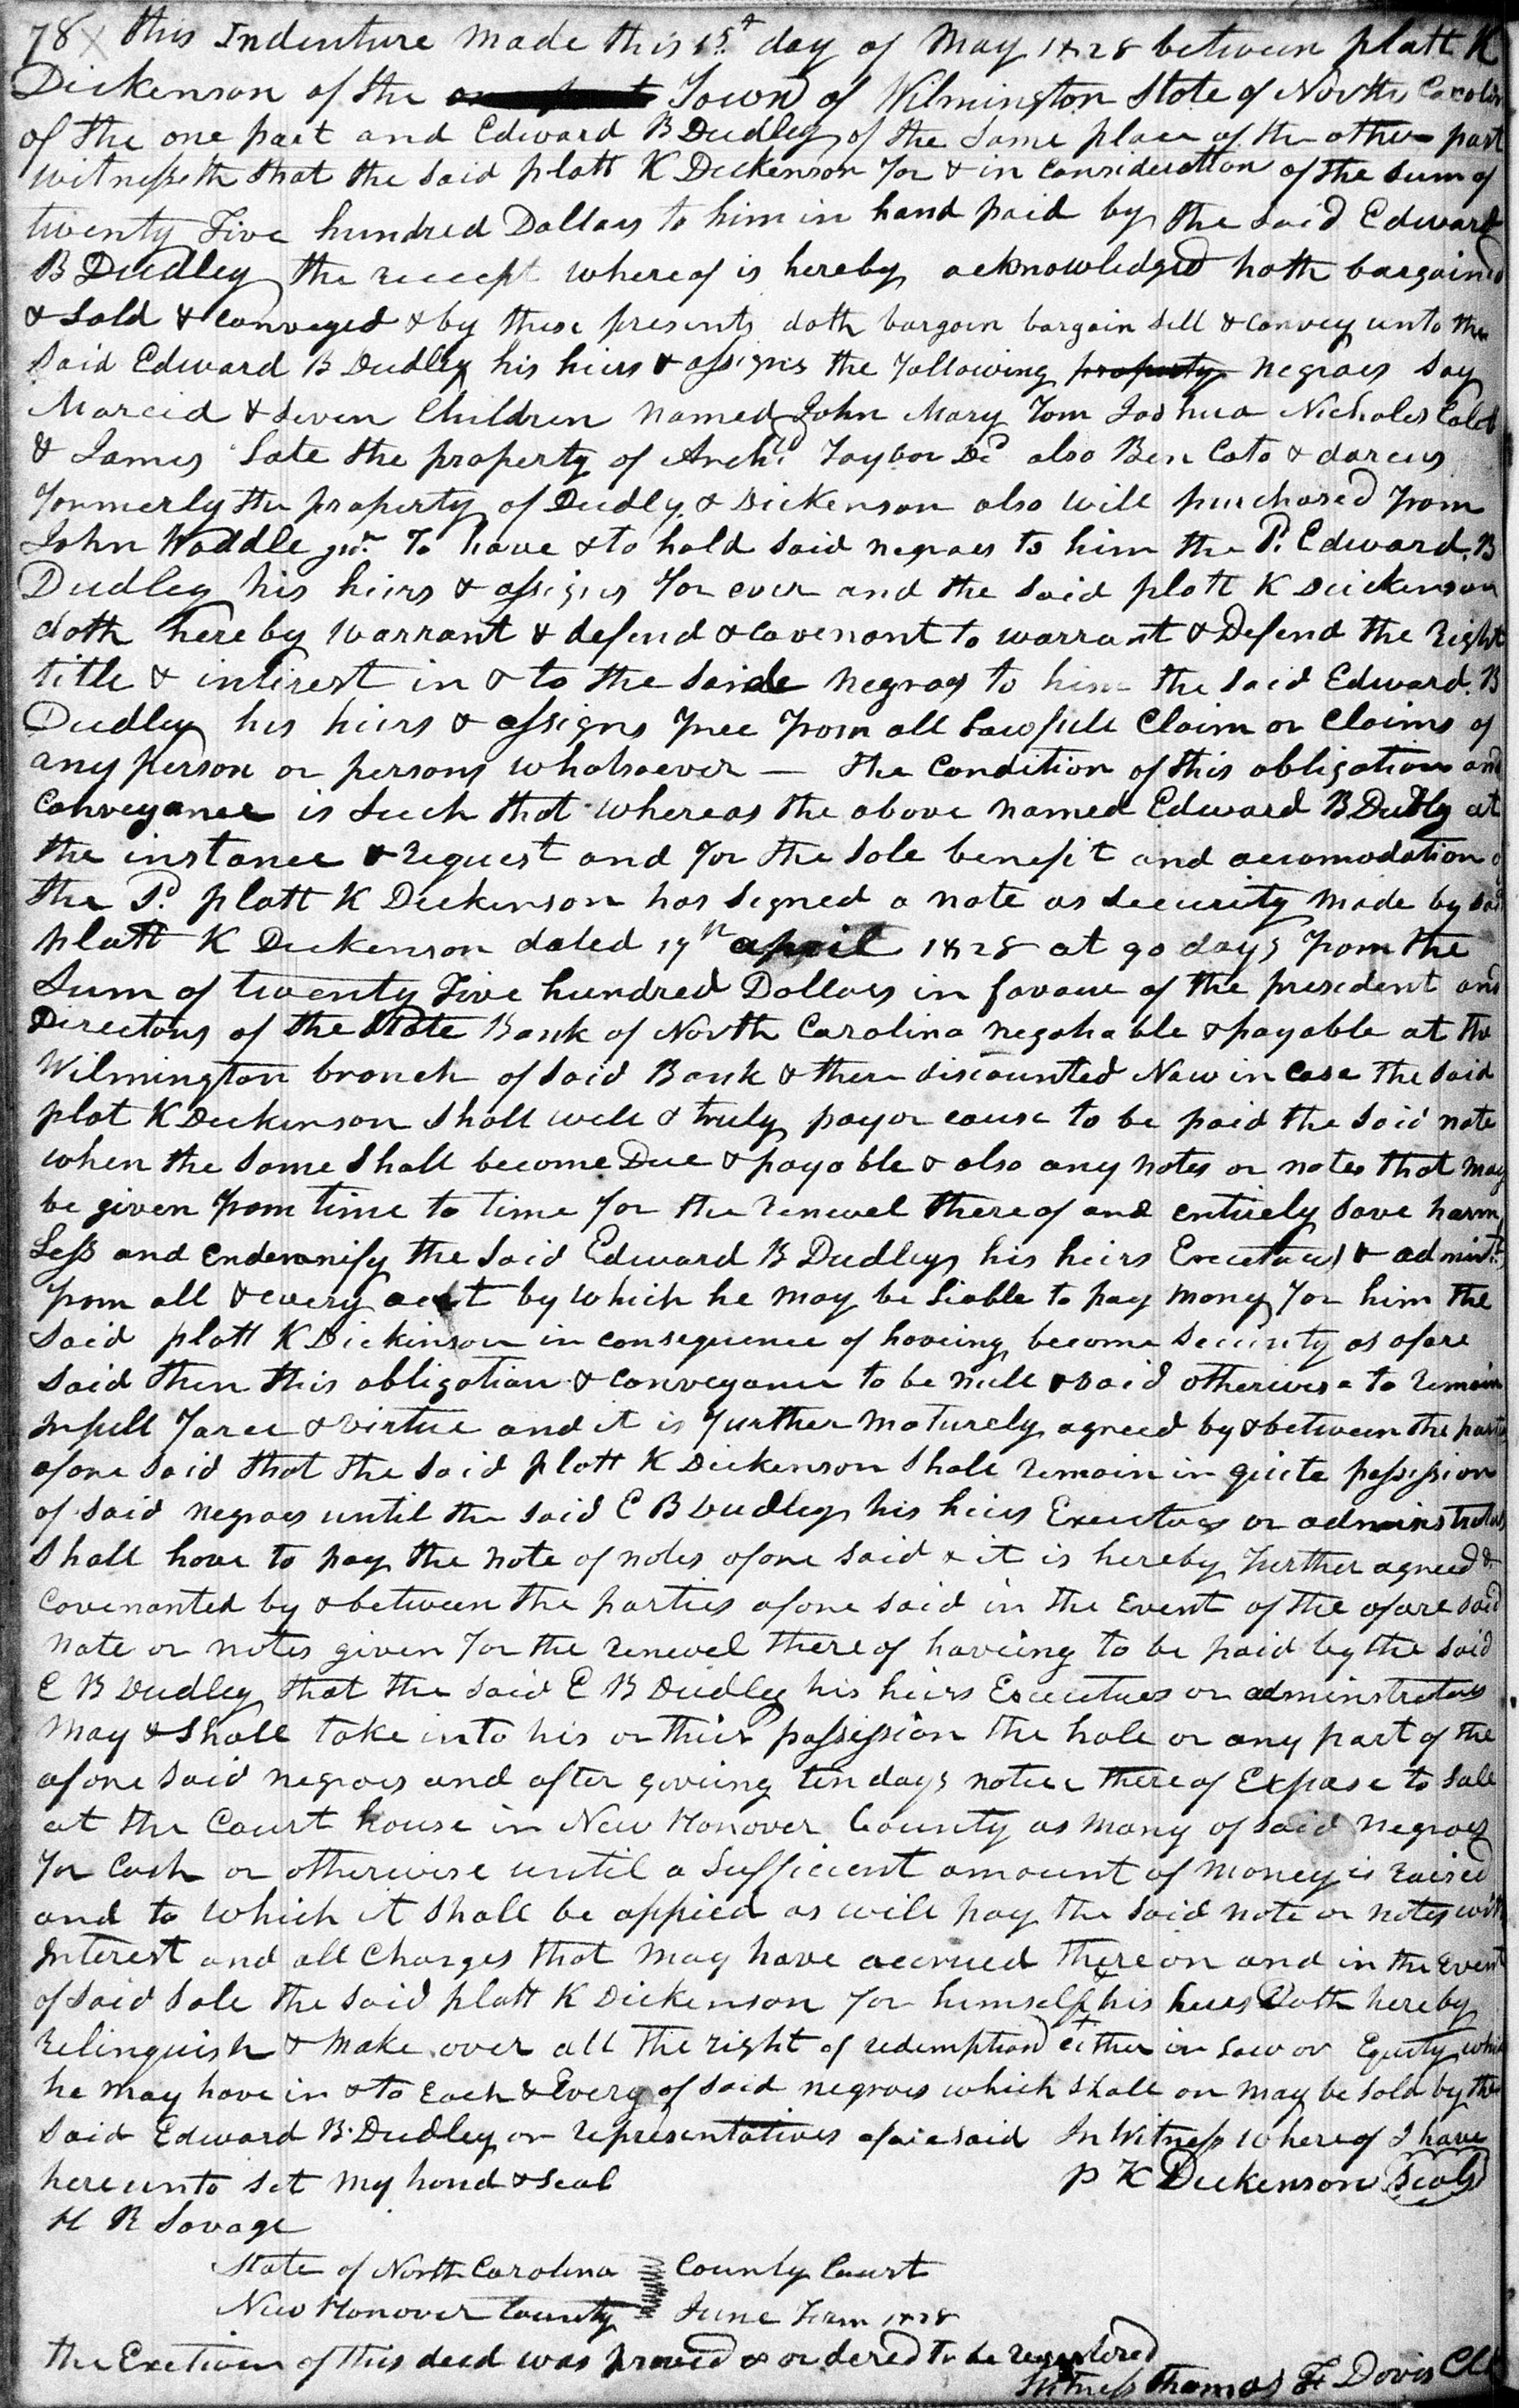 78 X this Indenture made this 15th day of May 1828 between platt K
Dickenson of the Town of Wilmington State of North Carolin
of the one part and Edward B Dudley of the same place of the other part
witnesseth that the said platt K Dickenson for & in consideration of the sum of
twenty Five hundred Dollars to him in hand paid by the said Edward
B Dudley the receept whereof is hereby acknowledged hath bargained
& sold & conveyed & by these presents doth bargain bargain sell & convey unto the
said Edward B Dudley his heirs & assigns the following property negroes say
Marcid & Seven Children named John Mary Tom Joshua Nicholes Caleb
& James late the property of Archd Taylor Dcd also Ben Cato & darcus
formerly the property of Dudly & Dickenson also will purchased from
John Waddle junr To have & to hold said negroes to him the Sd. Edward. B
Dudley his heirs & assigns for ever and the said platt K Dickenson
doth hereby warrant & defend & covenant to warrant & Defend the right
title & interest in & to the saide negroes to him the said Edward. B
Dudley his heirs & assigns free from all Lawfull Claim or Claims of
any person or persons whatsoever — the Condition of this obligation and
Conveyance is such that whereas the above named Edward B Dudly at
the instance & request and for the sole benefit and accomodation of
the Sd. platt K Dickenson has signed a note as security made by said
platt K Dickenson dated 19th april 1828 at 90 days from the
Sum of twenty Five hundred Dollars in favour of the president and
Directors of the State Bank of North Carolina negotiable & payable at the
Wilmington branch of said Bank & there discounted Now in case the said
plat K Dickenson shall well & truly pay or cause to be paid the said note
when the same shall become Due & payable & also any notes or notes that may
be given from time to time for the renewel thereof and entirely save harm
Less and endemnify the said Edward B Dudley his heirs Executors & admints.
from all & every act by which he may be liable to pay money for him the
said platt K Dickinson in consequence of haveing become security as afore
said then this obligation & conveyance to be null & void otherwise to remain
in full Force & virtue and it is further maturely agreed by & between the parties
afore said that the said platt K Dickenson shall remain in quiete possession
of said negroes until the said E B Dudley his heirs Executors or adminstrators
shall have to pay the note of notes afore said & it is hereby further agreed &
covenanted by & between the parties afore said in the Event of the afore said
note or notes given for the renewel there of haveing to be paid by the said
E B Dudley that the said E B Dudley his heirs Executues or adminstrators
may & shall take into his or their possession the hole or any part of the
afore said negroes and after giveing ten days notice there of Expose to sale
at the Court house in New Hanover County as many of said negroes
for Cash or otherwise until a sufficient amount of money is raised
and to which it shall be appied as will pay the said note or notes with
Interest and all charges that may have accrued there on and in the event
of said sale the said platt K Dickenson for himself & his heirs Doth hereby
relinquish & make over all the right of redemption either in Law or Equity which
he may have in & to Each & Every of said negroes which shall or may be sold by the
said Edward B. Dudley or representatives aforesaid In Witness whereof I have
hereunto set my hand & seal P K Dickenson Seal
H R Savage
State of North Carolina County Court
New Hanover County June Term 1828
the Exetiuen of this deed was proved & ordered to be registered
Witness Thomas F Davis Clk